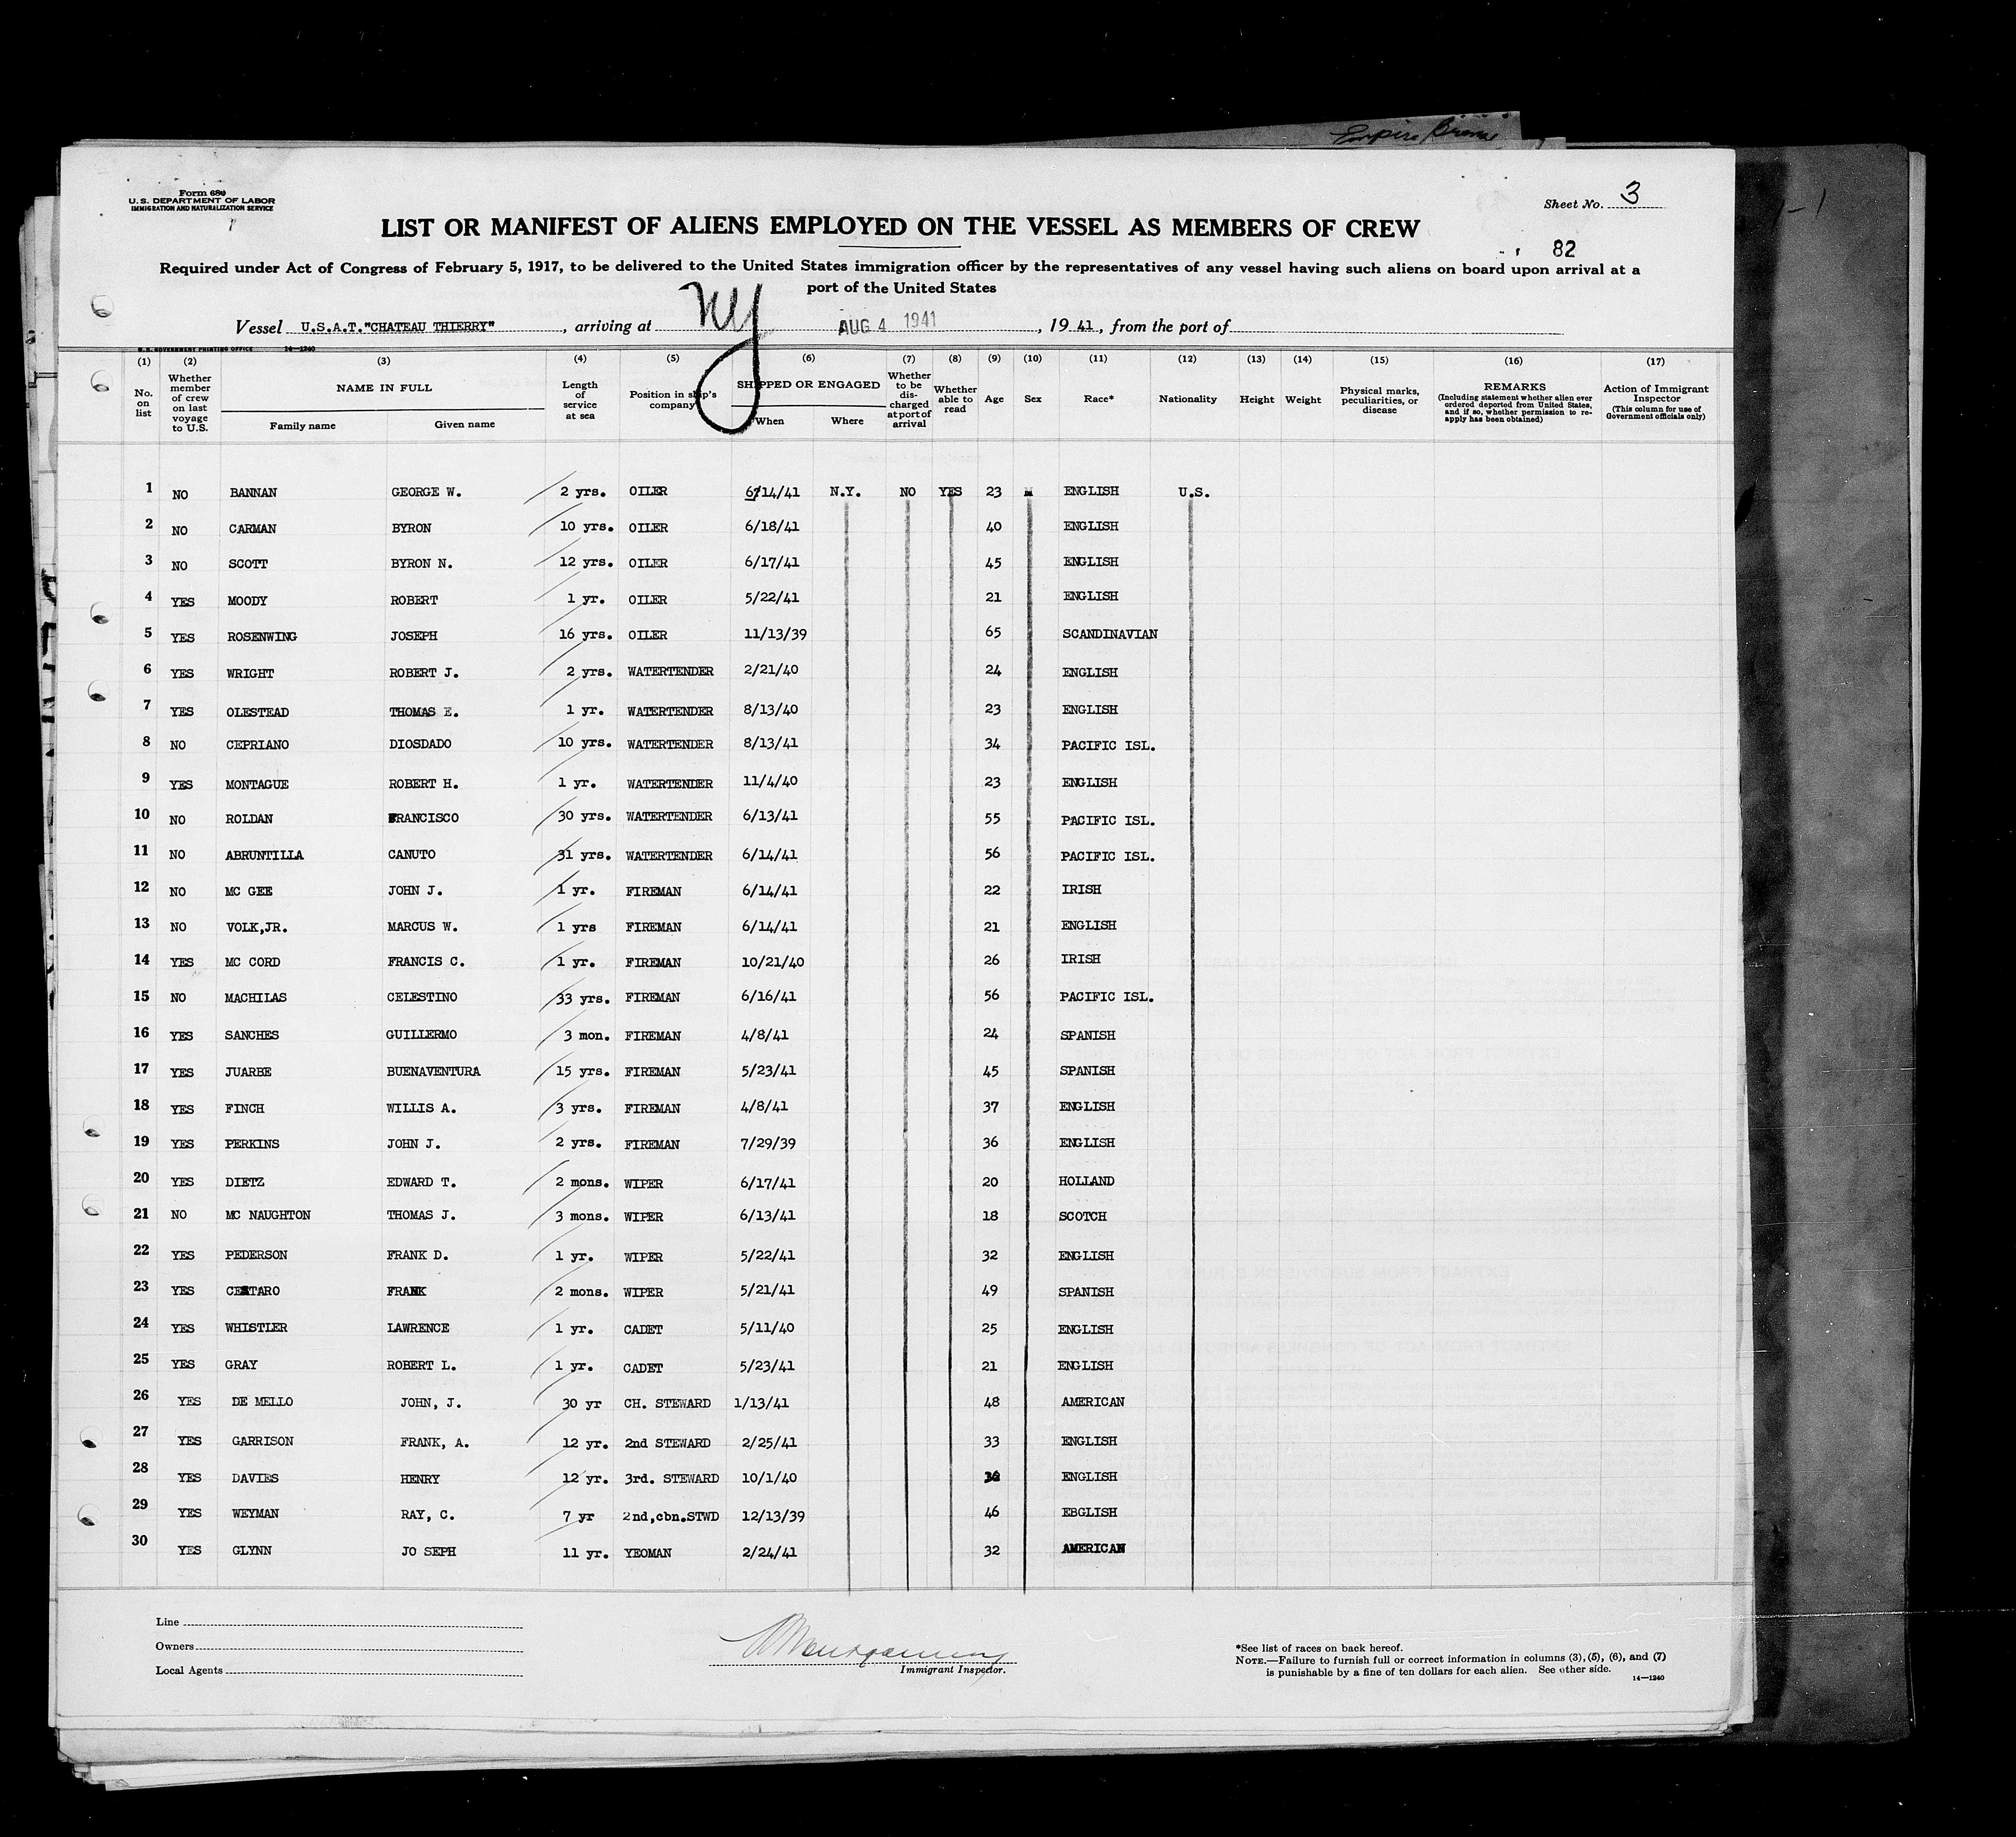 Empire
Form 680
U. S. DEPARTMENT OF LABOR
IMMIGRATION AND NATURALIZATION SERVICE
Sheet No. 3
LIST OR MANIFEST OF ALIENS EMPLOYED ON THE VESSEL AS MEMBERS OF CREW
82
Required under Act of Congress of February 5, 1917, to be delivered to the United States immigration officer by the representatives of any vessel having such aliens on board upon arrival at a
port of the United States
Vessel U.S.A.T."CHATEAU THIERRY", arriving at NY AUG 4 1941, 1941, from the port of
U. S. GOVERNMENT PRINTING OFFICE 14—1240
(1) (2) (3) (4) (5) (6) (7) (8) (9) (10) (11) (12) (13) (14) (15) (16) (17)
No. on list
Whether member of crew on last voyage to U.S.
NAME IN FULL
Family name Given name
Length of service at sea
Position in ship's company
SHIPPED OR ENGAGED
When Where
Whether to be discharged at port of arrival
Whether able to read
Age Sex Race* Nationality Height Weight
Physical marks, peculiarities, or disease
REMARKS
(Including statement whether alien ever ordered deported from United States, and if so, whether permission to re-apply has been obtained)
Action of Immigrant Inspector
(This column for use of Government officials only)
1 NO BANNAN GEORGE W. 2 yrs. OILER 6/14/41 N.Y. NO YES 23 M ENGLISH U.S.
2 NO CARMAN BYRON 10 yrs. OILER 6/18/41 40 ENGLISH
3 NO SCOTT BYRON N. 12 yrs. OILER 6/17/41 45 ENGLISH
4 YES MOODY ROBERT 1 yr. OILER 5/22/41 21 ENGLISH
5 YES ROSENWING JOSEPH 16 yrs. OILER 11/13/39 65 SCANDINAVIAN
6 YES WRIGHT ROBERT J. 2 yrs. WATERTENDER 2/21/40 24 ENGLISH
7 YES OLESTEAD THOMAS E. 1 yr. WATERTENDER 8/13/40 23 ENGLISH
8 NO CEPRIANO DIOSDADO 10 yrs. WATERTENDER 8/13/41 34 PACIFIC ISL.
9 YES MONTAGUE ROBERT H. 1 yr. WATERTENDER 11/4/40 23 ENGLISH
10 NO ROLDAN FRANCISCO 30 yrs. WATERTENDER 6/13/41 55 PACIFIC ISL.
11 NO ABRUNTILLA CANUTO 31 yrs. WATERTENDER 6/14/41 56 PACIFIC ISL.
12 NO MC GEE JOHN J. 1 yr. FIREMAN 6/14/41 22 IRISH
13 NO VOLK,JR. MARCUS W. 1 yrs FIREMAN 6/14/41 21 ENGLISH
14 YES MC CORD FRANCIS C. 1 yr. FIREMAN 10/21/40 26 IRISH
15 NO MACHILAS CELESTINO 33 yrs. FIREMAN 6/16/41 56 PACIFIC ISL.
16 YES SANCHES GUILLERMO 3 mon. FIREMAN 4/8/41 24 SPANISH
17 YES JUARBE BUENAVENTURA 15 yrs. FIREMAN 5/23/41 45 SPANISH
18 YES FINCH WILLIS A. 3 yrs. FIREMAN 4/8/41 37 ENGLISH
19 YES PERKINS JOHN J. 2 yrs. FIREMAN 7/29/39 36 ENGLISH
20 YES DIETZ EDWARD T. 2 mons. WIPER 6/17/41 20 HOLLAND
21 NO MC NAUGHTON THOMAS J. 3 mons. WIPER 6/13/41 18 SCOTCH
22 YES PEDERSON FRANK D. 1 yr. WIPER 5/22/41 32 ENGLISH
23 YES FRANK 2 mons. WIPER 5/21/41 49 SPANISH
24 YES WHISTLER LAWRENCE 1 yr. CADET 5/11/40 25 ENGLISH
25 YES GRAY ROBERT L. 1 yr. CADET 5/23/41 21 ENGLISH
26 YES DE MELLO JOHN, J. 30 yr CH. STEWARD 1/13/41 48 AMERICAN
27 YES GARRISON FRANK, A. 12 yr. 2nd STEWARD 2/25/41 33 ENGLISH
28 YES DAVIES HENRY 12 yr. 3rd. STEWARD 10/1/40 ENGLISH
29 YES WEYMAN RAY, C. 7 yr 2nd,cbn.STWD 12/13/39 46 EBGLISH
30 YES GLYNN JO SEPH 11 yr. YEOMAN 2/24/41 32 AMERICAN
Line
Owners
Local Agents
Montgomery
Immigrant Inspector.
*See list of races on back hereof.
NOTE.—Failure to furnish full or correct information in columns (3), (5), (6), and (7)
is punishable by a fine of ten dollars for each alien. See other side.
14—1240